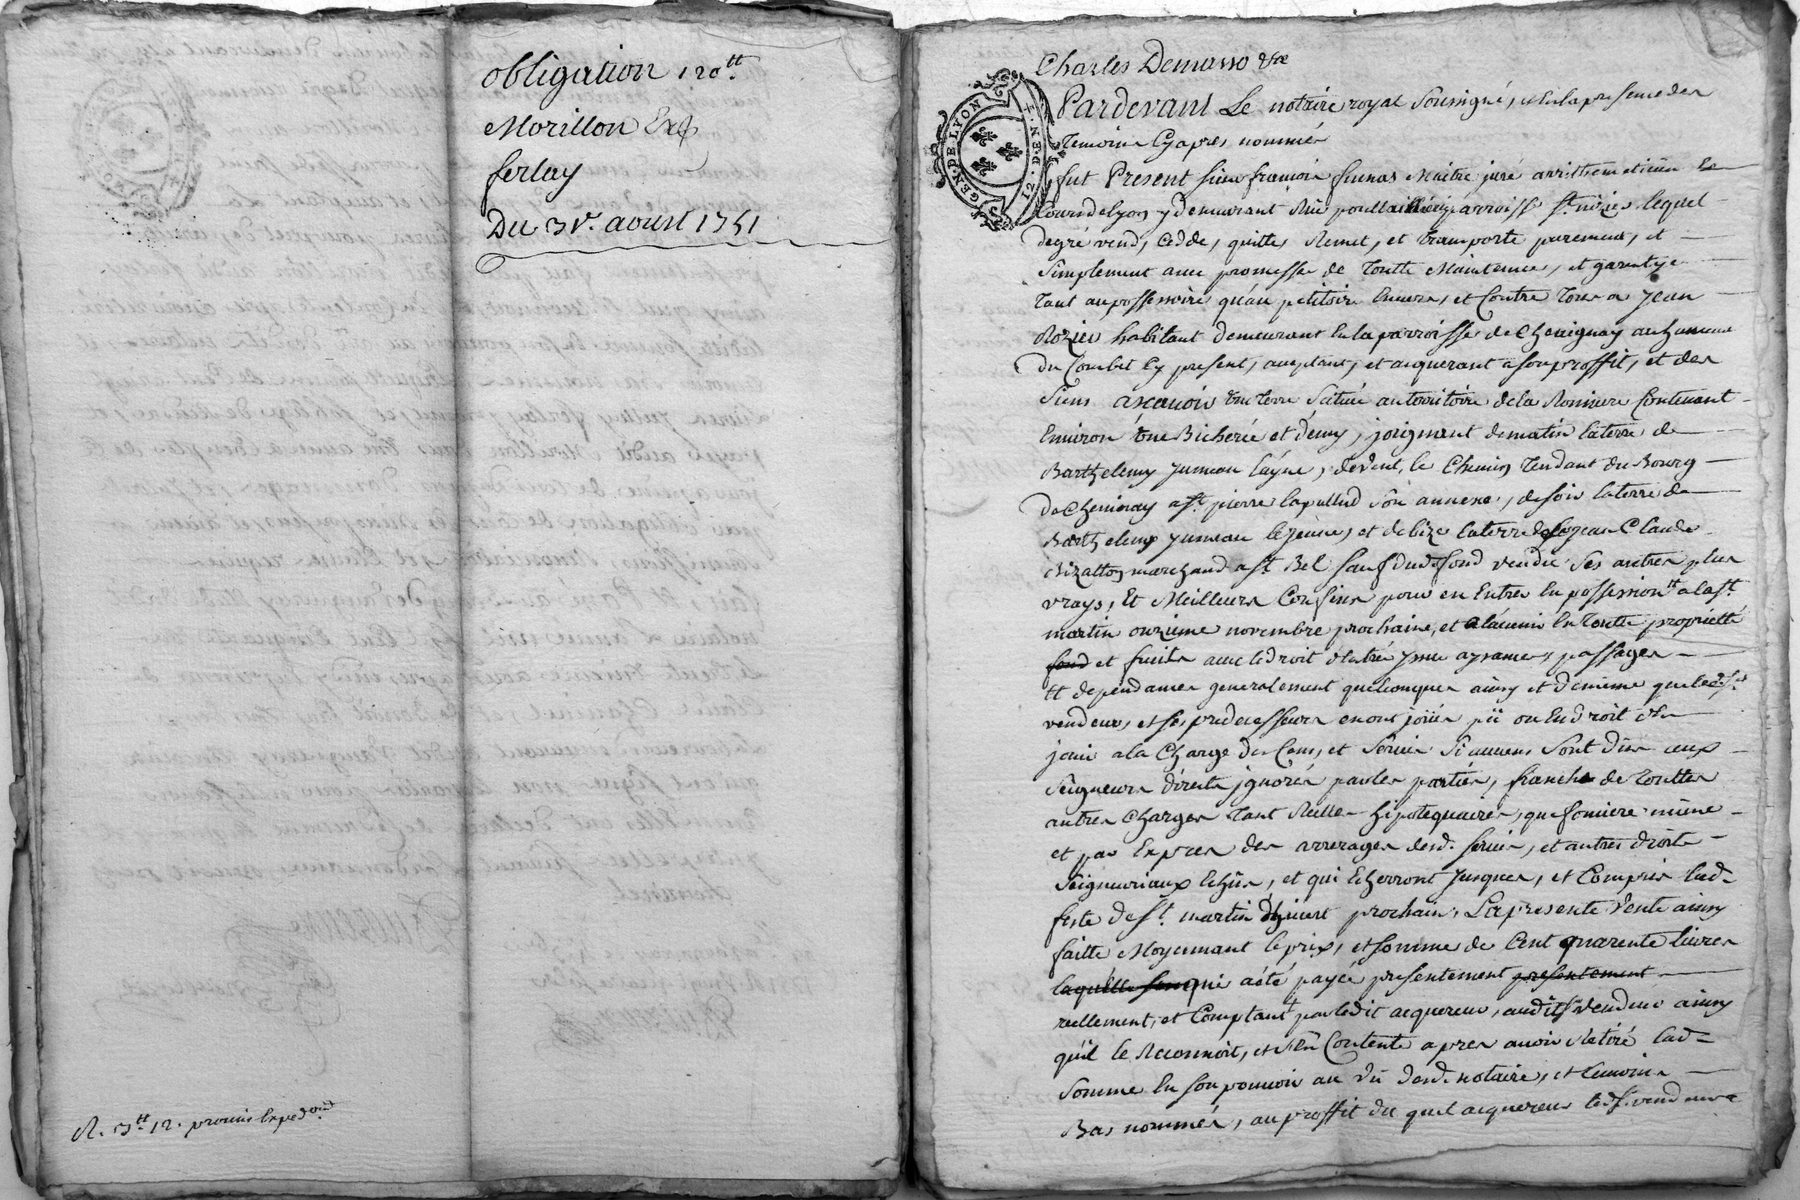 obligation 120tt
Morillon Exp
ferlay
Du 31e. aoust 1751
R. 3tt 12. promis Exped
Charles Demasso
GEN. DE LYON
12. DEN.
Pardevant Le notaire royal soussigné, et En la presence des
temoins Cy apres nommés
fut Present sieur françois Maitre juré arithmeticien
Lyon y demeurant Rüe parroisse St. nizier lequel
de gré vend, Cedde, quitte, Remet, et transporte purement, et
simplement avec promesse de toutte Maintenue, et garentye
tant au possessoire qu'au petitoire Envers, et Contre tous a Jean
Rozier habitant demeurant En la parroisse de Chevignay au hameau
du Combit Cy present, acceptant, et acquerant a son proffit, et des
siens a sçavoir une terre Scituée au territoire de la Ronsiere Contenant
Environ une Bicherée et demy, joignant de matin la terre de
Barthelemy Jumeau layné, de vent, le Chemin tendant du Bourg
de Chevinay a St. pierre lapallud son annexe, de soir la terre de
Barthelemy Jumeau le Jeune, et de bize la terre de Jean Claude
Bizallon marchand a St. Bel sauf dud. fond vendu ses autres plus
vrays, Et Meilleurs Confins pour en Entrer En possession a la St.
martin onzieme novembre prochaine, et a l'avenir En toutte proprietté
fond et fruits avec le droit d'entrée yssue aysances, passages
et dependances generalement quelconques ainsy et de meme que led. sr.
vendeur, et ses predecesseurs en ont joüis pü ou En droit d'En
jouir a la Charge des Cens, et servis Si aucuns sont dus aux
Seigneurs directs ignorés par les parties, franche de touttes
autres Charges tant Reelles hipotequaires, que fonciere même
et par Exprès des arrerages desd. servis, et autres droits
Seigneuriaux Echüs, et qui Echerront Jusques, et Compris lad.
feste de St. martin d'hivert prochain, La presente Vente ainsy
faitte Moyennant le prix, et somme de Cent quarente livres
laquelle somme qui a été payée presentement presentement
reellement, et Comptant par ledit acquereur, audit sr. Vendeur ainsy
qu'il le Reconnoit, et s'En Contente apres avoir Retiré lad.
Somme En son pouvoir au vü dud. notaire, et temoins
Bas nommés, au proffit du quel acquereur led. sr. vendeur